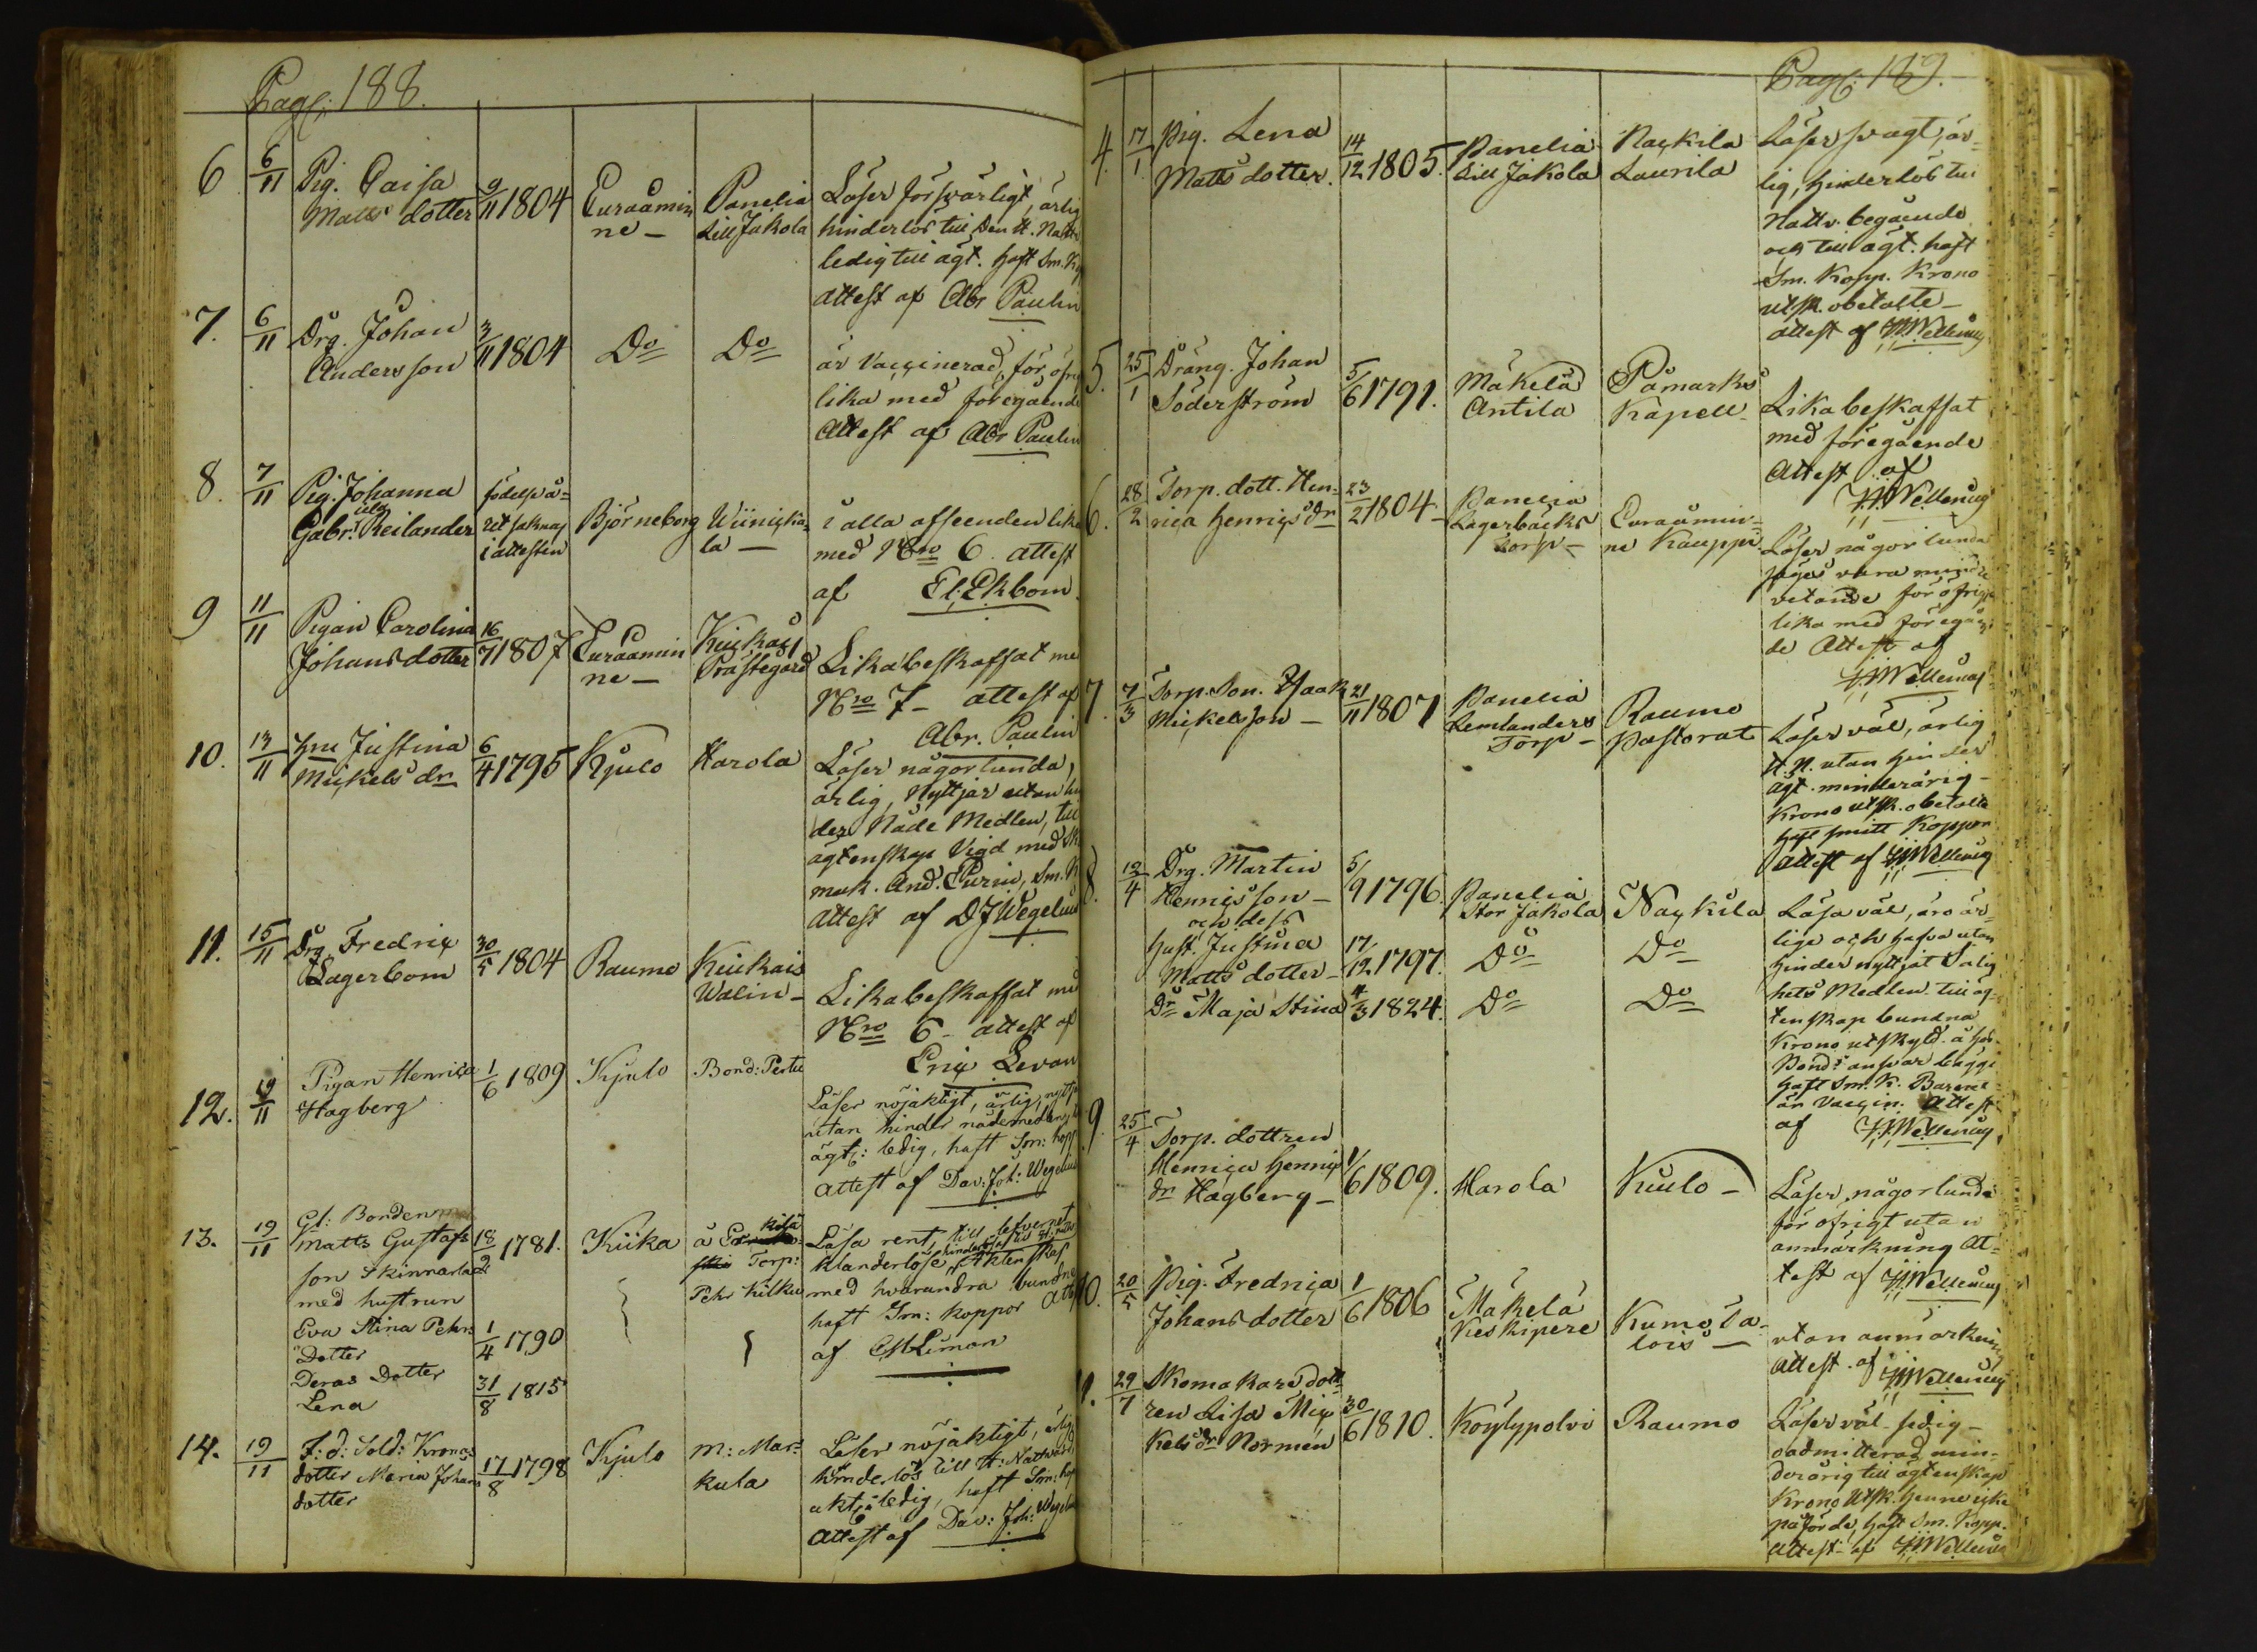 Pag: 188.
6 6/11 Pig. Caisa
Matts dotter 9/11 1804 Euraåmin
ne — Panelia
Lill Jakola Läser försvarligt, ärlig
hinderlös till Den H. Nattv
ledig till ägt. haft Sm. Kop
attest af Abr Paulin
7. 6/11 Drg. Johan
Andersson 3/11 1804 Do Do är Vaccinerad, för öfrig
lika med föregående
Attest af Abr Paulin
8. 7/11 Pig. Johanna
Gabr: Reilander födelse å=
ret saknas
i attesten Björneborg Wiinicka
la — i alla afseenden lika
med Nro 6 attest
af El. Ekbom
9 11/11 Pigan Carolina
Johansdotter 16/7 1807 Euraåmin
ne — Kiukais
Prästegård Lika beskaffat me
Nro 7 — attest af
Abr. Paulin
10. 13/11 Justina
Mickels dr 6/4 1795 Kjulo Harola Läser någorlunda,
ärlig, Nyttjar utan hin
der Nåde Medlen, till
ägtenskap Vigd med
And. Purin, Sm. K
attest af DJ Wegelius
11. 15/11 Drg Fredric
Lagerbom 30/5 1804 Raumo Kiukais
Walin — Lika beskaffat med
Nro 6 — attest af
Eric Levan
12. 19/11 Pigan Henrica
Hagberg 1/6 1809 Kjulo Bond: Pertu Läser nöjaktigt, ärlig, nyttj
utan hinder nådemedlen,
ägt: ledig, haft Sm: kopp
attest af Dav: Joh: Wegelius
13. 19/11 Gl: Bonden
Matts Gustafs
son Skinnarla 18/2 1781. Kiika å
Torp:
Pehr Kilku Läsa rent, till lefvernet
klanderlöse, Äktenskap
med hvarandra bundne
haft Sm: koppor att
af
med hustrun
Eva Stina Pehrs
Dotter 1/4 1790
Deras Dotter
Lena 31/8 1815
14. 19/11 F: d: Sold: Kronas
dotter Maria Johans
dotter 17/8 1798 Kjulo M: Mar=
kula Läser nöjaktigt, ärlig
hinderlös till H: Nattvard
äkt: ledig, haft Sm: kop
attest af Dav: Joh: Wegelius
Pag: 189.
4. 17/1 Pig. Lena
Matts dotter. 14/12 1805. Panelia
Lill Jakola Nackila
Laurila Läser svagt, är=
lig, hinderlös till
Nattv. begående
och till ägt. haft
Sm. Kopp. Krono
utsk. obetalte —
attest af
5. 25/1 Dräng. Johan
Söderström 5/6 1791. Mäkelä
Antila Påmarks
Kapell Lika beskaffat
med föregående
Attest af
6. 28/2 Torp. dott. Hen=
rica Henrics dr 23/2 1804 — Panelia
Lagerbäcks
Torp — Euraåmin=
ne Kauppi Läser någorlunda
säges vara mindre
vetande för öfrigt
lika med föregåen
de Attest af
7. 7/3 Torp. Son. Isaak
Mickelsson — 21/11 1807 Panelia
Lemlanders
Torp — Raumo
Pastorat Läser väl, ärlig
H. N. utan hinder
ägt. minderårig —
Krono utsk. obetalte
haft smitt Koppor
attest af
8. 12/4 Drg. Martin
Henricsson —
och dess 5/9 1796. Panelia
Stor Jakola Nackila Läsa väl, äro är=
lige och hafva utan
hinder nyttjat Salig
hets Medlen. till äg=
tenskap bundna
Krono utskyld. å Hus
bonds ansvar bägge
haft Sm. K. Barnet
är Vaccin: Attest
af
hust. Justina
Matts dotter — 17/12 1797. Do Do
Dr Maja Stina 4/3 1824. Do Do
9. 25/4 Torp. dottren
Henrica Henrics
dr Hagberg — 1/6 1809. Harola Kiulo — Läser någorlunda
för öfrigt utan
anmärkning At=
test af
10. 20/5 Pig. Fredrica
Johansdotter 1/6 1806 Mäkelä
Keskipere Kumo Da=
lois — utan anmärkning
attest af
11. 29/7 Skomakare dott
ren Lisa Mic
kels dr Normén 30/6 1810. Köylypolvi Raumo Läser väl sedig —
oadmitterad min=
derårig till ägtenskap
Krono Utsk. henne icke
påförde, haft Sm. Kopp.
attest af